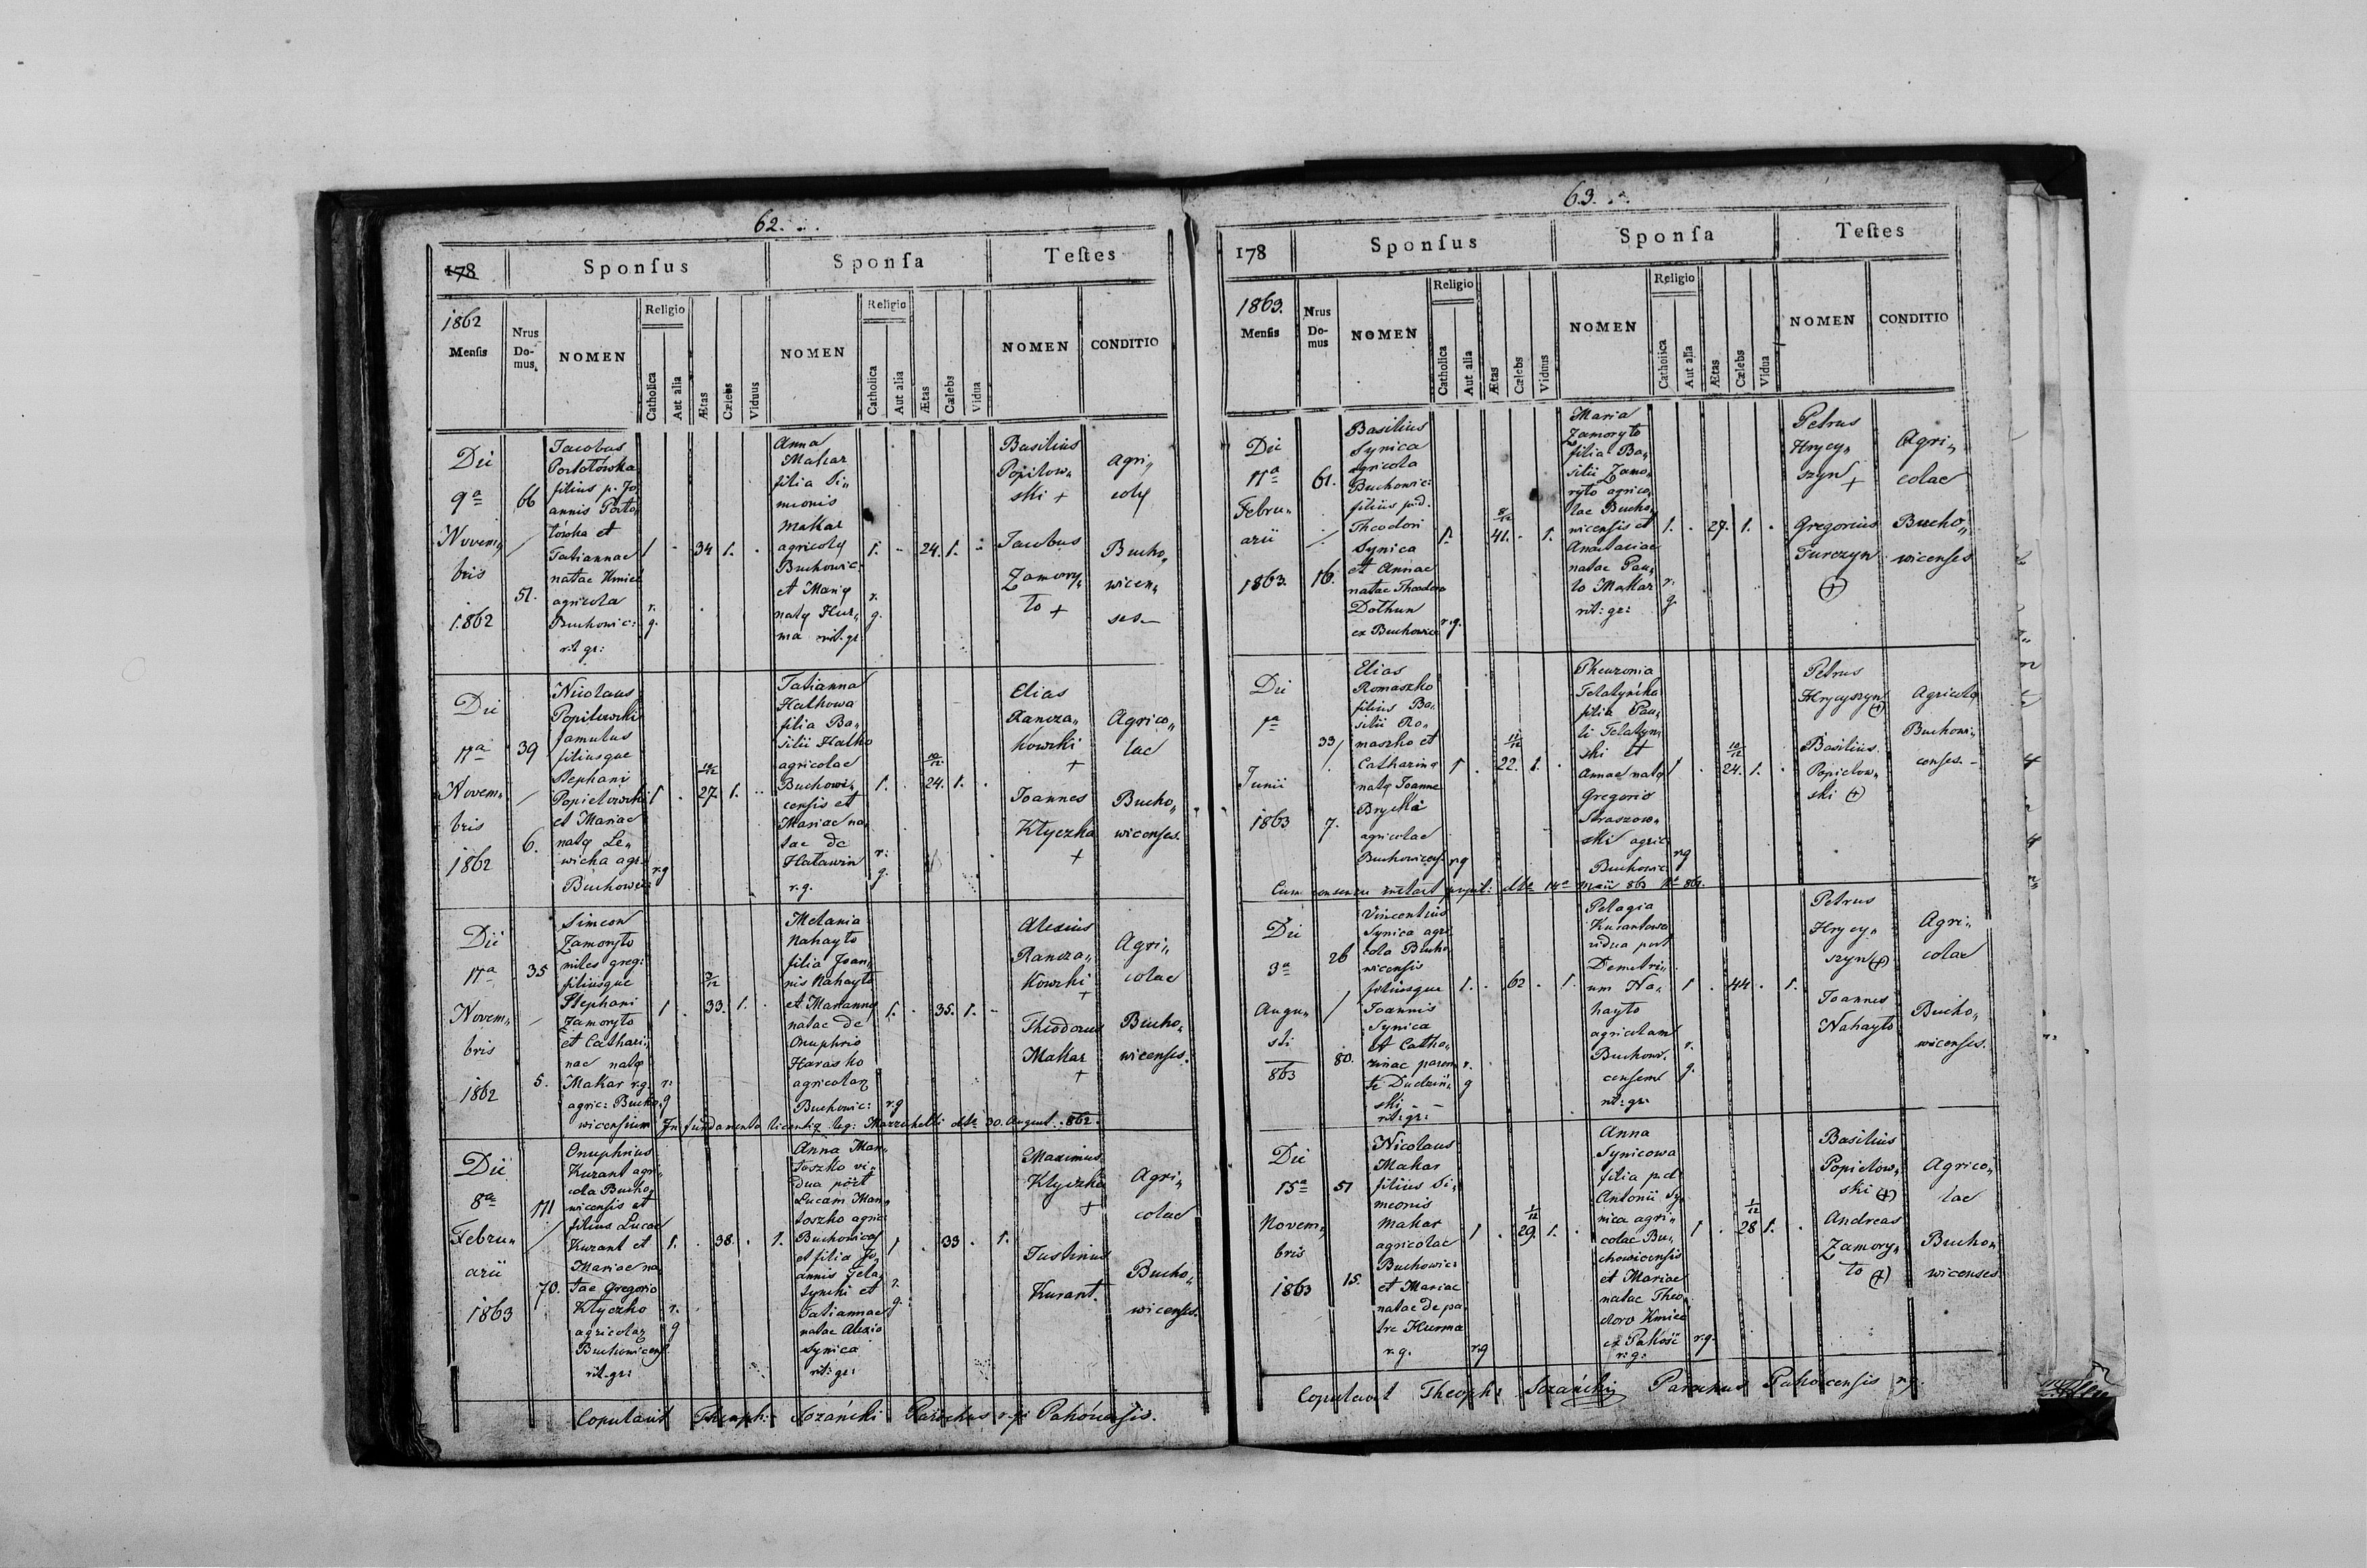 62.
178 Sponſus Sponſa Teſtes
1862 Menſis
Nrus Domus
NOMEN
Religio
Catholica
Aut alia
Ætas
Cælebs
Viduus
NOMEN
Religio
Catholica
Aut alia
Ætas
Cælebs
Vidua
NOMEN
CONDITIO
Die
9a
Novem„
bris
1862
66
51.
Jacobus
filius p. Jo
annis
et
Tatiannae
natae Kmieć
agricola
Buchowic:
rit gr:
r.
g.
1 34 1.
Anna
Makar
filia Si„
meonis
Makar
agricolę
Buchowic:
et Marię
natę Hur„
ma rit. gr.
r.
g.
1. 24. 1.
Basilius
Popilow„
ski +
Jacobus
Zamory„
to +
agri„
colę
Bucho„
wicen„
ses
Die
17a
Novem„
bris
1862
39
6.
Nicolaus
Popilowski
famulus
filiusque
Stephani
Popielowski
et Mariae
natę Le„
wicka agr.
Buchowic:
r.g
1 10/12 27. 1.
Tatianna
Halkowa
filia Ba„
silii Halko
agricolae
Buchowi„
censis et
Mariae na
tae de
Hatawin
r.g.
r.
g.
1. 10/12 24. 1.
Elias
Rancza„
kowski
+
Joannes
Kłyczko
+
Agrico„
lae
Bucho„
wicenses.
Die
17a
Novem„
bris
1862
35
5.
Simeon
Zamoryto
miles greg:
filiusque
Stephani
Zamoryto
et Cathari„
nae natę
Makar r.g.
agric: Bucho„
wicensium
r.
g
1 3/12 33. 1.
Melania
Nahayto
filia Joan„
nis Nahayto
et Mariannę
natae de
Onuphrio
Harasko
agricolaę
Buchowic:
r.g
1. 35. 1.
Alexius
Rancza„
kowski
+
Theodorus
Makar
+
Agri„
colae
Bucho„
wicenses.
In fundamento licentię leg: Mazzuchelli dtto 30. August. 862.
Die
8a
Febru„
arii
1863
171
70.
Onuphrius
Kurant agri„
cola Bucho„
wicensis et
filius Lucae
Kurant et
Mariae na„
tae Gregorio
Kłyczko
agricolaę
Buchowicens
rit. gr:
r.
g
1. 38. 1.
Anna Man„
toszko vi„
dua post
Lucam Man„
toszko agric
Buchowicens
et filia Jo„
annis Tela„
tynski et
Tatiannae
natae Alexio
Synica
rit: gr:
r.
g.
1 33 1.
Maximus
Kłyczko
+
Justinus
Kurant.
Agri„
colae
Bucho„
wicenses.
Copulavit Theoph: Sozański Parochus r. g. Pakoscensis.
63.
178 Sponſus Sponſa Teſtes
1863. Menſis
Nrus Domus
NOMEN
Religio
Catholica
Aut alia
Ætas
Cælebs
Viduus
NOMEN
Religio
Catholica
Aut alia
Ætas
Cælebs
Vidua
NOMEN
CONDITIO
Die
17a
Febru„
arii
1863.
61.
16.
Basilius
Synica
agricola
Buchowic:
filius p.d.
Theodori
Synica
et Annae
natae Theodoro
Dothun
ex Buchowic
r.g.
1. 8/12 41. 1.
Maria
Zamoryto
filia Ba„
silii Zamo„
ryto agrico„
lae Bucho„
wicensis et
Anastasiae
natae Pau„
lo Makar
rit: gr:
r.
g.
1. 27. 1.
Petrus
Hrycy„
szyn
+
Gregorius
Turczyn
(+)
Agri„
colae
Bucho„
wicenses
Die
1a
Junii
1863
33
7.
Elias
Romaszko
filius Ba„
silii Ro„
maszko et
Catharinę
natę Joanne
Bryćka
agricolae
Buchowicens
r.g
1 11/12 22. 1.
Pheuronia
Telatyńska
filia Pau„
li Telatyn„
ski et
Annae natę
Gregorio
Straszow„
ski agric
Buchowic
r.g
1 10/12 24. 1.
Petrus
Hrycyszyn
(+)
Basilius
Popielow„
ski (+)
Agricolę
Buchowi„
censes.
Cum consensu dtto 14a Maii 863 No 861.
Die
3a
Augu„
sti
863
26
80.
Vincentius
Synica agri
cola Bucho
wicensis
filiusque
Joannis
Synica
et Catha„
rinae paren
te Dudziń„
ski
rit: gr:
r.
g
1. 62 1.
Pelagia
Kurantowa
vidua post
Demetri„
um Na„
hayto
agricolam
Buchowi„
censem
rit: gr:
r.
g.
1 44 1.
Petrus
Hrycy„
szyn (+)
Joannes
Nahayto
Agri„
colae
Bucho„
wicenses.
Die
15a
Novem„
bris
1863
51
15.
Nicolaus
Makar
filius Si„
meonis
Makar
agricolae
Buchowic:
et Mariae
natae de pa„
tre Hurma
r.g.
r.g
1 1/12 29. 1.
Anna
Synicowa
filia p.d.
Antonii Sy„
nica agri„
colae Bu„
chowicensis
et Mariae
natae Theo„
doro Kmieć
ex Pakość
r.g.
r.g.
1 1/12 28 1.
Basilius
Popielow„
ski (+)
Andreas
Zamory„
to (+)
Agrico„
lae
Bucho„
wicenses
Copulavit Theoph: Sozański Parochus Pakoscensis r.g.